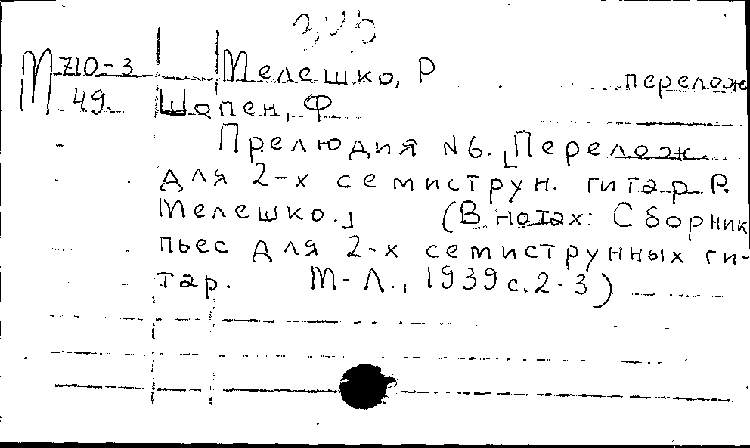 М 710-3 Мелешко, Р перелож
49. Шопен, Ф
Прелюдия N 6. [Перелож.
для 2-х семиструн. гитар Р.
Мелешко.] (В нотах: Сборник
пьес для 2-х семиструнных ги-
тар. М-Л., 1939 с. 2-3)